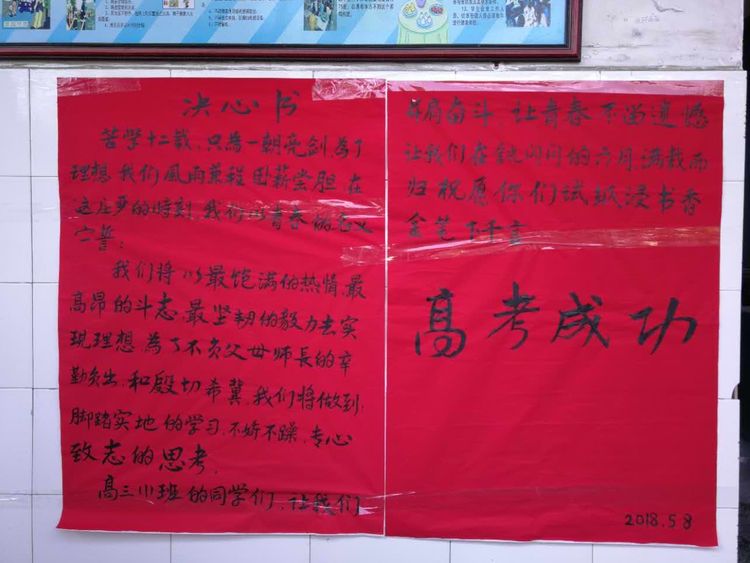 决心书
苦学十二载,只為一朝亮剑,為了
理想,我们風雨兼程,卧薪尝胆,在
这庄严的時刻,我们以青春的名义
宣誓:
我们将以最饱满的热情,最
高昂的斗志,最坚韧的毅力去实
现理想,為了不负父母師長的辛
勤负出,和殷切希冀,我们将做到:
脚踏实地的学习,不娇不躁,专心
致志的思考,
高三
班的同学们,让我们
并肩奋斗,让青春不留遗憾
让我们在
闪闪的六月,满载而
归,祝愿你们试纸浸书香
金笔下千言
高考成功
2018.5.8